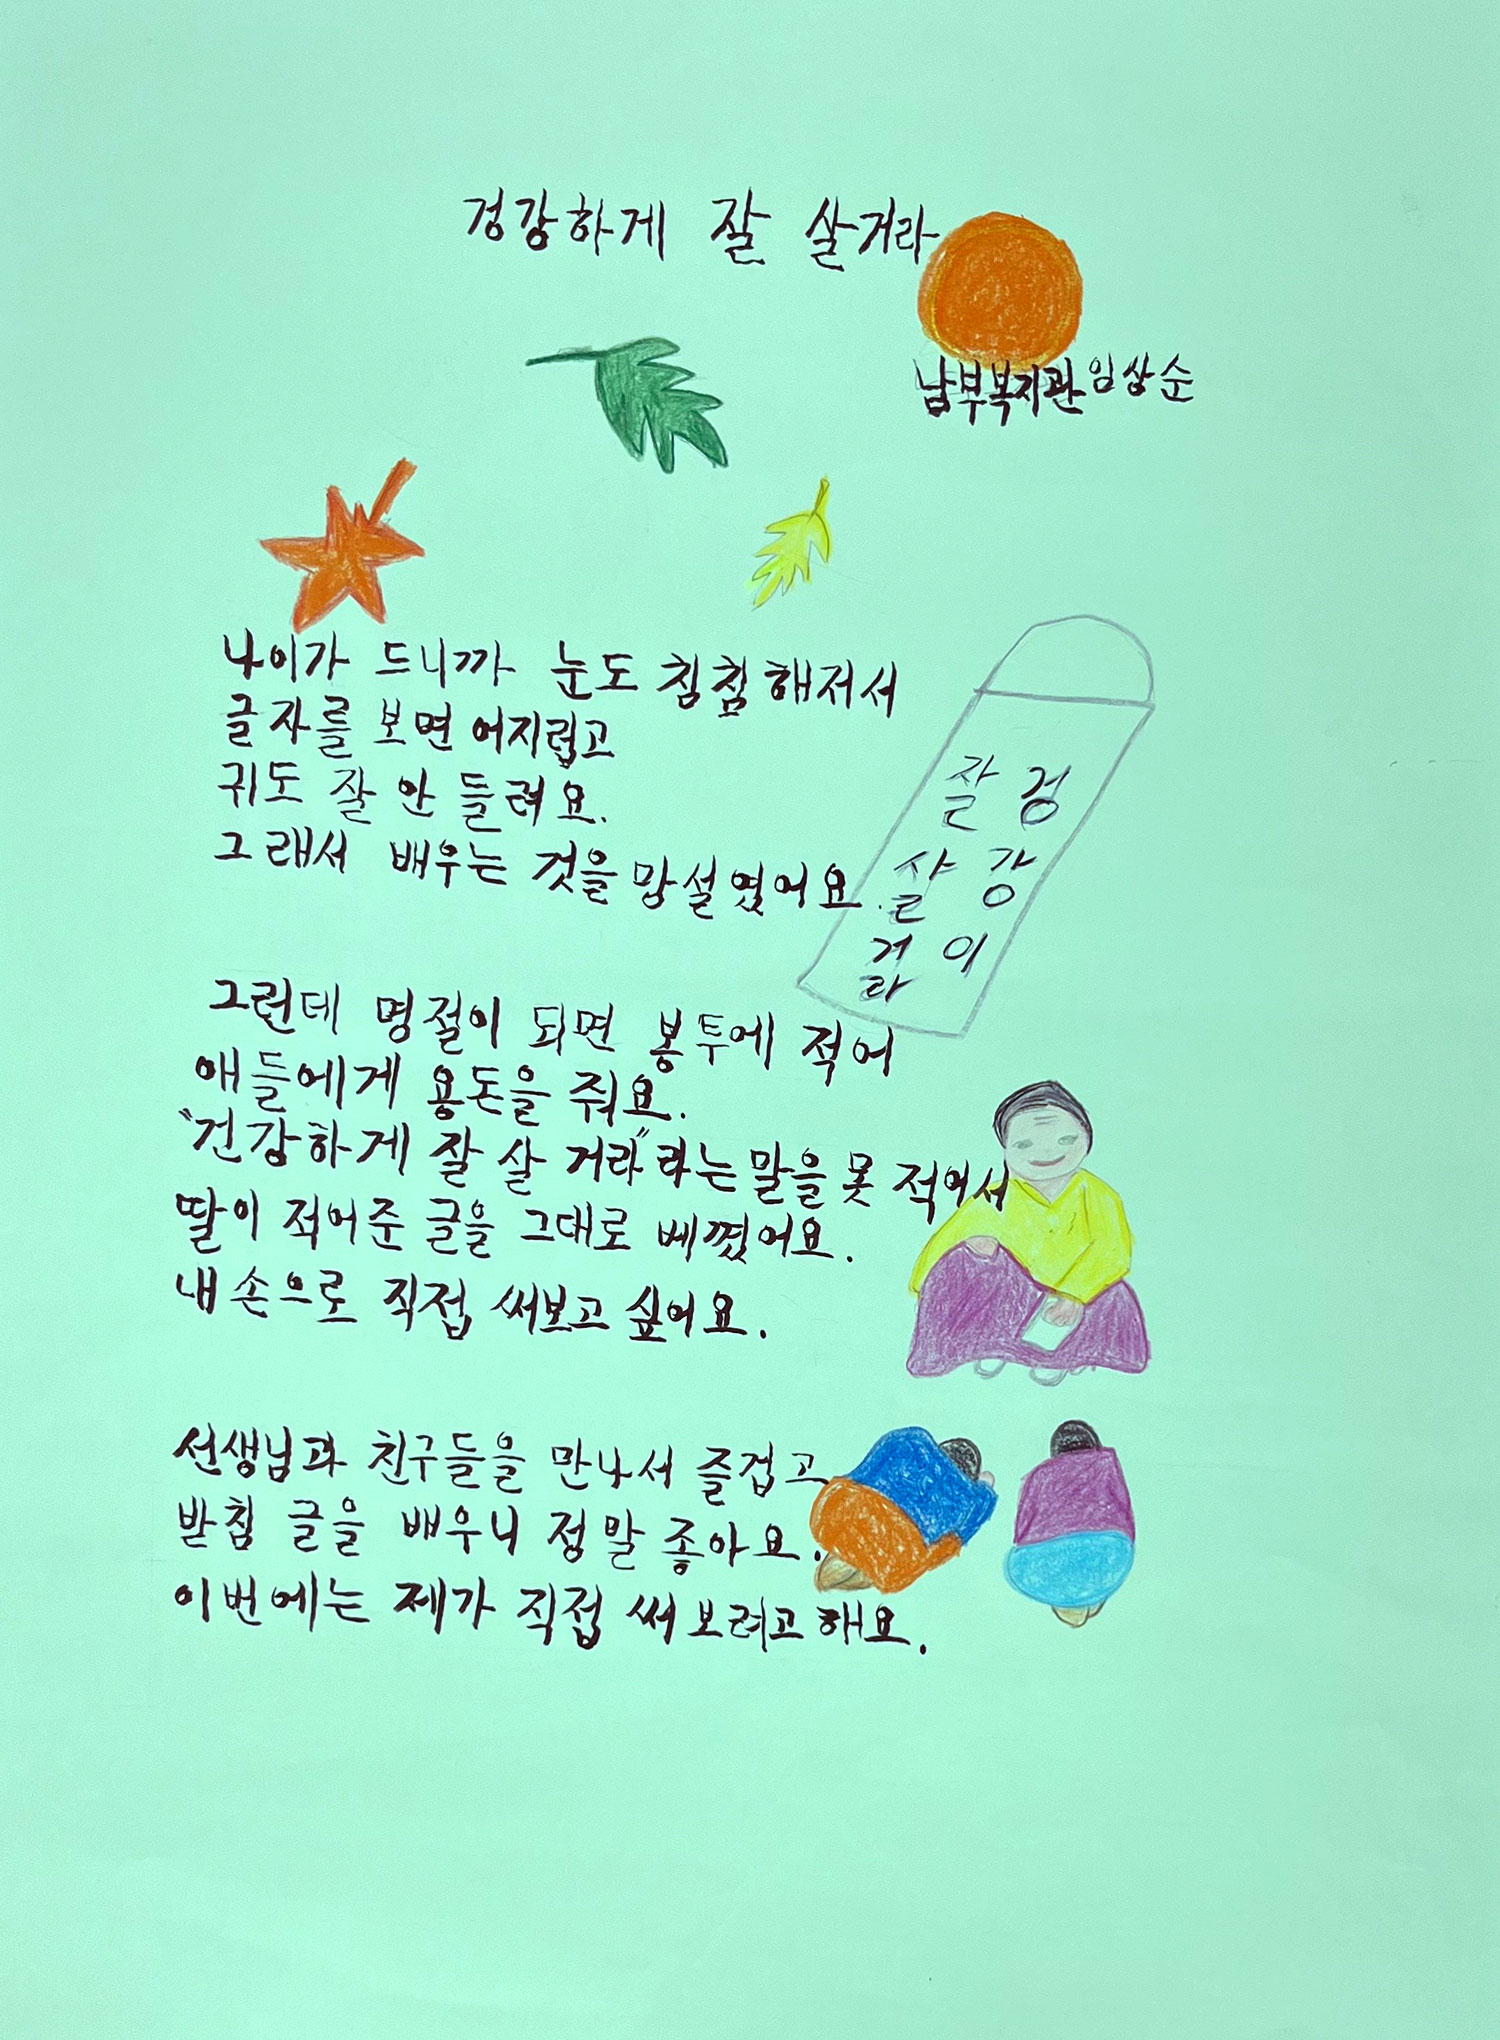 겅강하게 잘 살거라
남부복지관 임상순
나이가 드니까 눈도 침침해저서
글자를 보면 어지럽고
귀도 잘 안 들려요.
그래서 배우는 것을 망설였어요.
겅강이
잘살거라
그런데 명절이 되면 봉투에 적어
애들에게 용돈을 줘요.
"건강하게 잘 살 거라"라는 말을 못 적어서
딸이 적어준 글을 그대로 베꼈어요.
내 손으로 직접 써보고 싶어요.
선생님과 친구들을 만나서 즐겁고
받침 글을 배우니 정말 좋아요.
이번에는 제가 직접 써 보려고 해요.